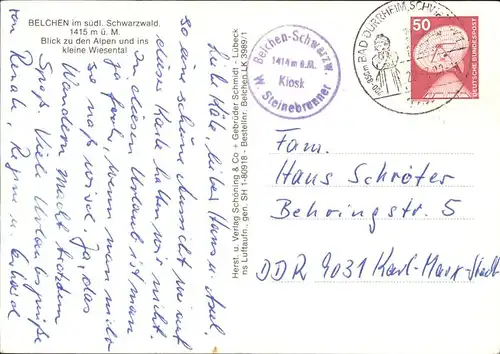 BELCHEN im südl. Schwarzwald,
1415 m ü. M.
Blick zu den Alpen und ins
kleine Wiesental
Liebe Käte, lieber Hans u. Axel,
so eine schöne Aussicht wie auf
dieser Karte hatten wir nicht.
In diesem Urlaub ist man
ja froh, wenn man nicht
so naß wird. Ja, das
Wandern macht trotzdem
Spaß. Viele Urlaubsgrüße
von Renate, Regin u. Erhard
Herst. u. Verlag Schöning & Co + Gebrüder Schmidt - Lübeck
ns Luftaufn., gen. SH 1-80918 - Bestellnr. Belchen LK 3989/1
Belchen-Schwarzw.
1414 m ü.M.
Kiosk
W. Steinebrunner
BAD DÜRRHEIM, SCHW
700-850m
50
DEUTSCHE BUNDESPOST
Fam.
Hans Schröter
Behringstr. 5
DDR 9031 Karl-Marx-Stadt